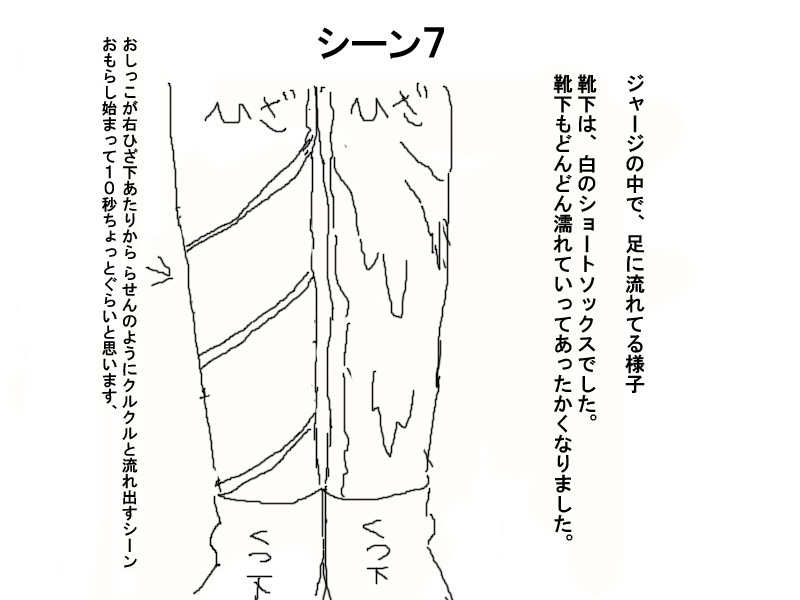 シーン7
ジャージの中で、足に流れてる様子
靴下は、白のショートソックスでした。
靴下もどんどん濡れていってあったかくなりました。
ひざ
ひざ
おしっこが右ひざ下あたりから らせんのようにクルクルと流れ出すシーン
おもらし始まって１０秒ちょっとぐらいと思います、
くつ下
くつ下